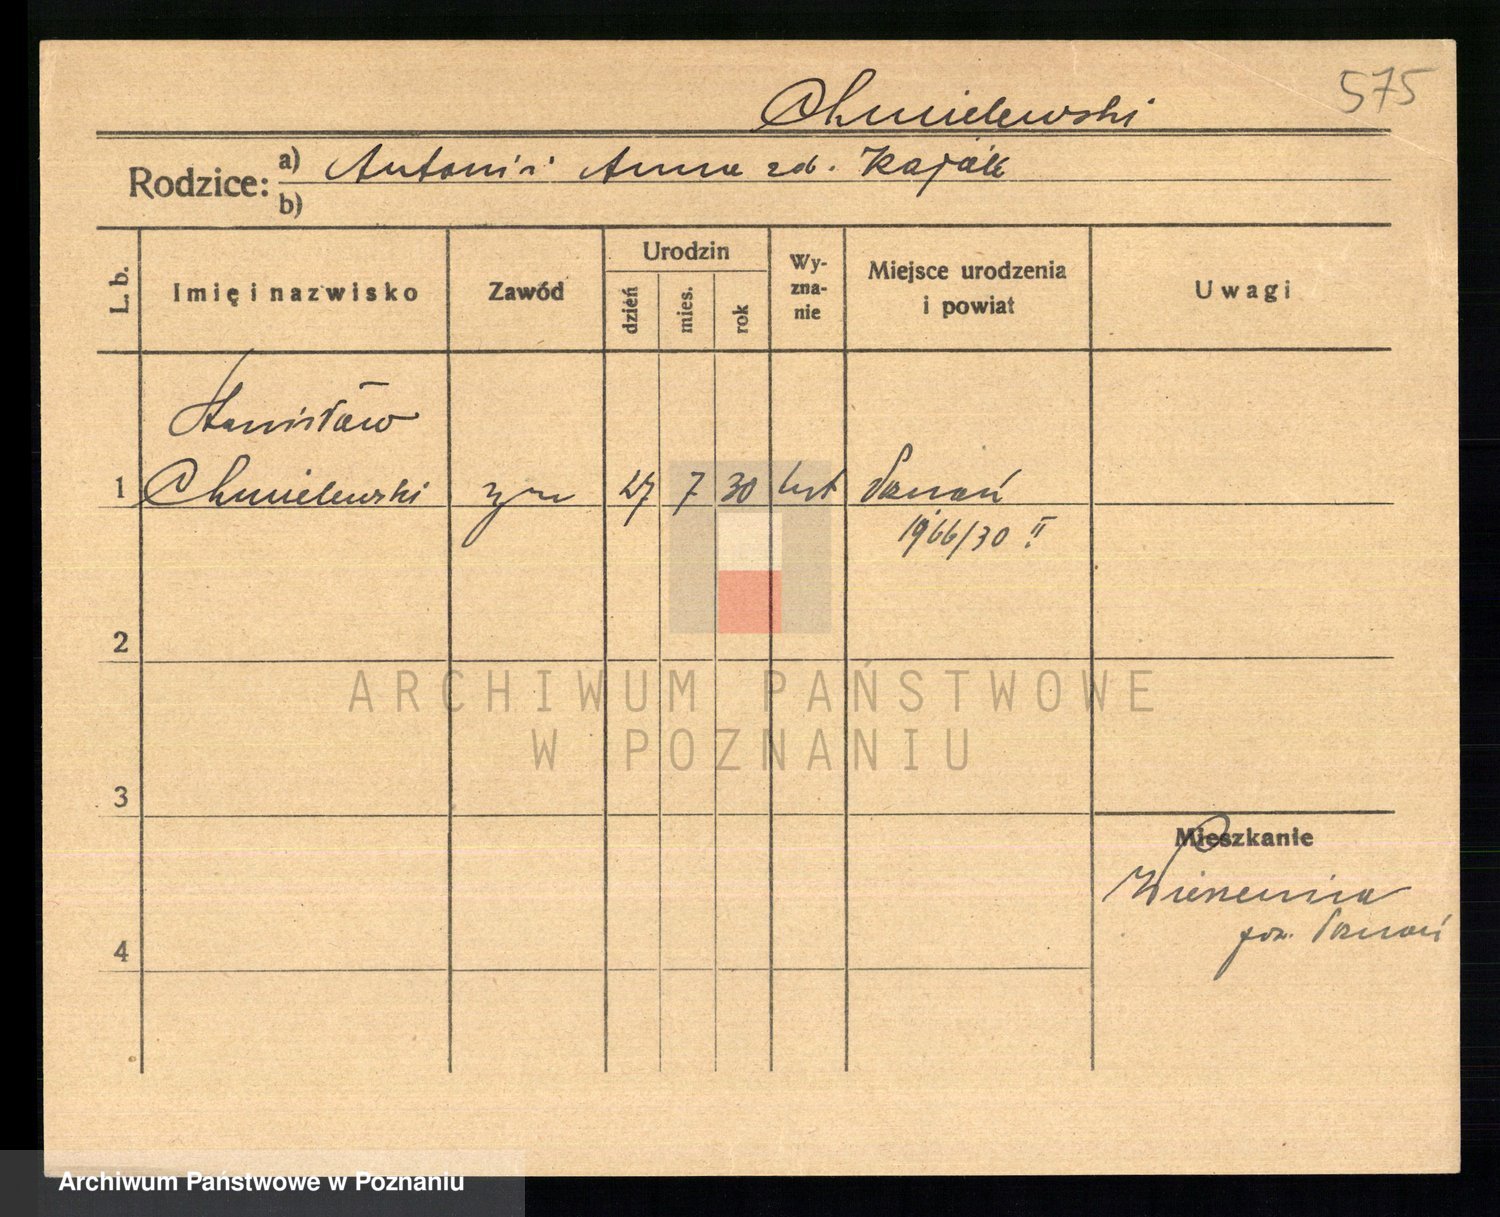 575
Chmielewski
Rodzice: a) Antoni i Anna zd. Kająk
b)
L. b. Imię i nazwisko Zawód Urodzin dzień mies. rok Wy-zna-nie Miejsce urodzenia i powiat Uwagi
Stanisław
1 Chmielewski syn 27 7 30 kat Poznań
1966/30 II
2
ARCHIWUM PAŃSTWOWE
W POZNANIU
3
Mieszkanie
4
pow. Poznań
Archiwum Państwowe w Poznaniu